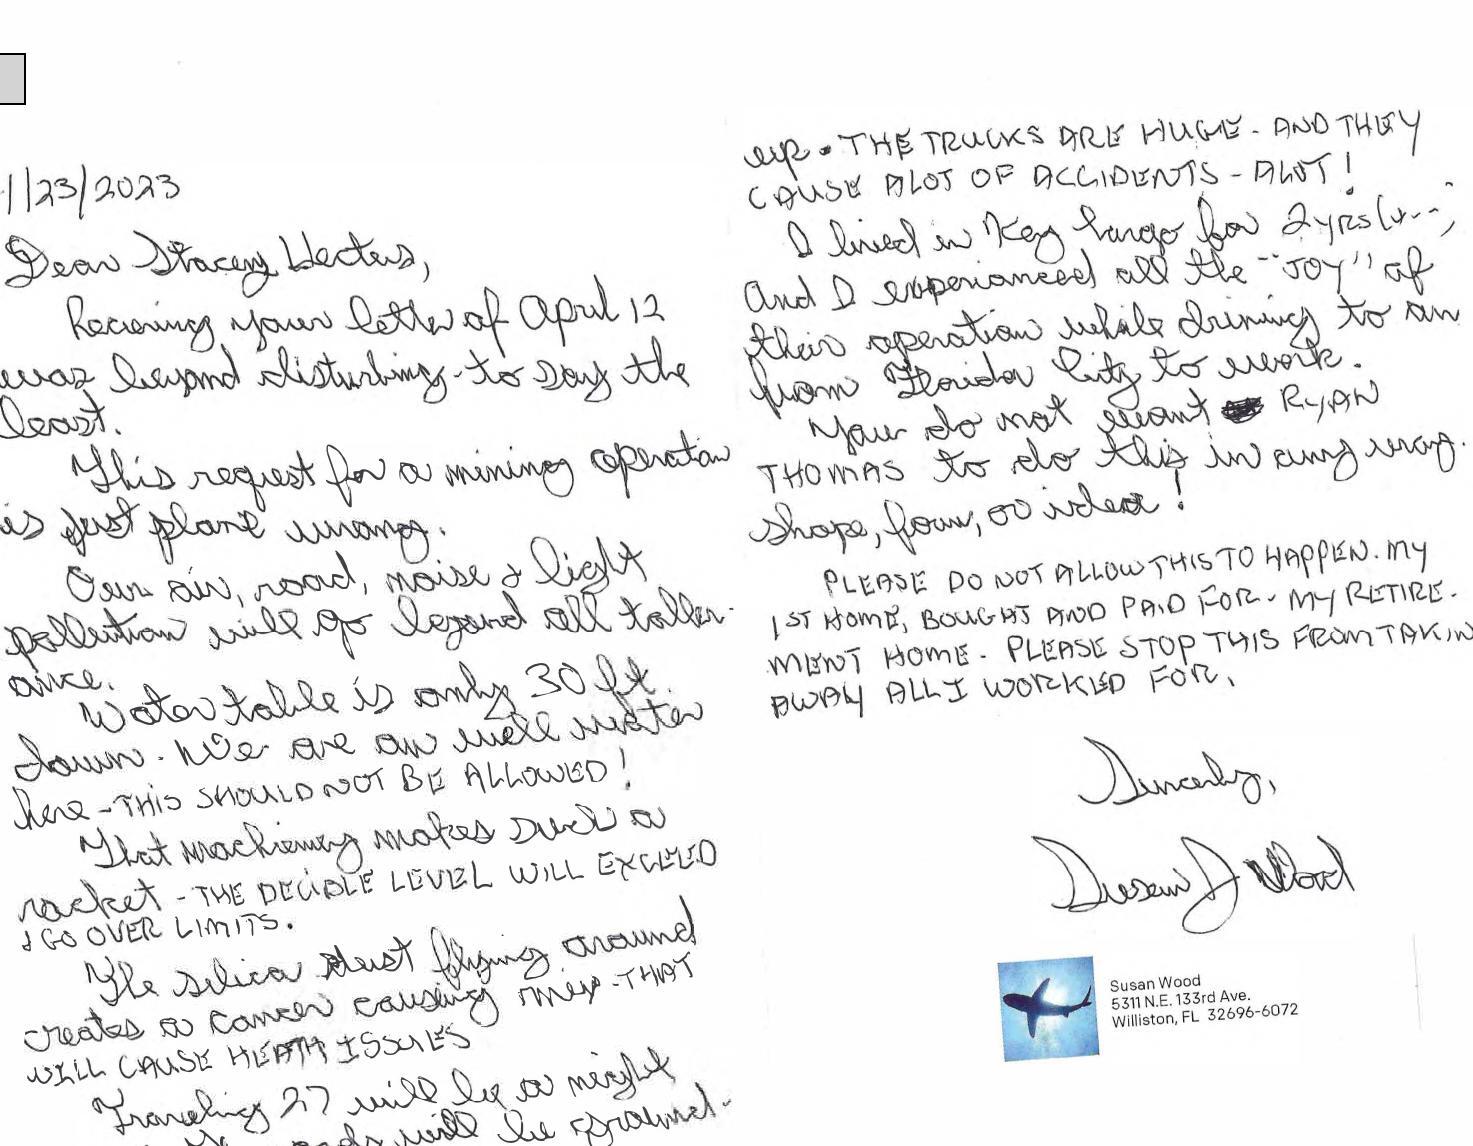 1/23/2023
Dear Stacey Hectus,
Recieving your letter of April 12
was beyond disturbing - to say the
least.
This request for a mining operation
is just plane wrong.
Our air, road, noise & light
pollution will go beyond all toller-
ance.
Water table is only 30 ft.
down. We are on well water
here - THIS SHOULD NOT BE ALLOWED!
That machienery makes such a
racket - THE DECIBLE LEVEL WILL EXCEED
& GO OVER LIMITS.
The silica dust flying around
creates a cancer causing mix - THAT
WILL CAUSE HEATH ISSUES
Traveling 27 will be a night
roads will be ground-
up. THE TRUCKS ARE HUGE - AND THEY
CAUSE ALOT OF ACCIDENTS - ALOT!
I lived in Key Largo for 2 yrs
and I experianced all the "JOY" of
their operation while driving to an
from Florida City to work.
You do not want RYAN
THOMAS to do this in any way.
shape, form, or idea!
PLEASE DO NOT ALLOW THIS TO HAPPEN. MY
1ST HOME, BOUGHT AND PAID FOR - MY RETIRE-
MENT HOME. PLEASE STOP THIS FROM TAKIN
AWAY ALL I WORKED FOR.
Sincerly,
Susan J Wood
Susan Wood
5311 N.E. 133rd Ave.
Williston, FL 32696-6072